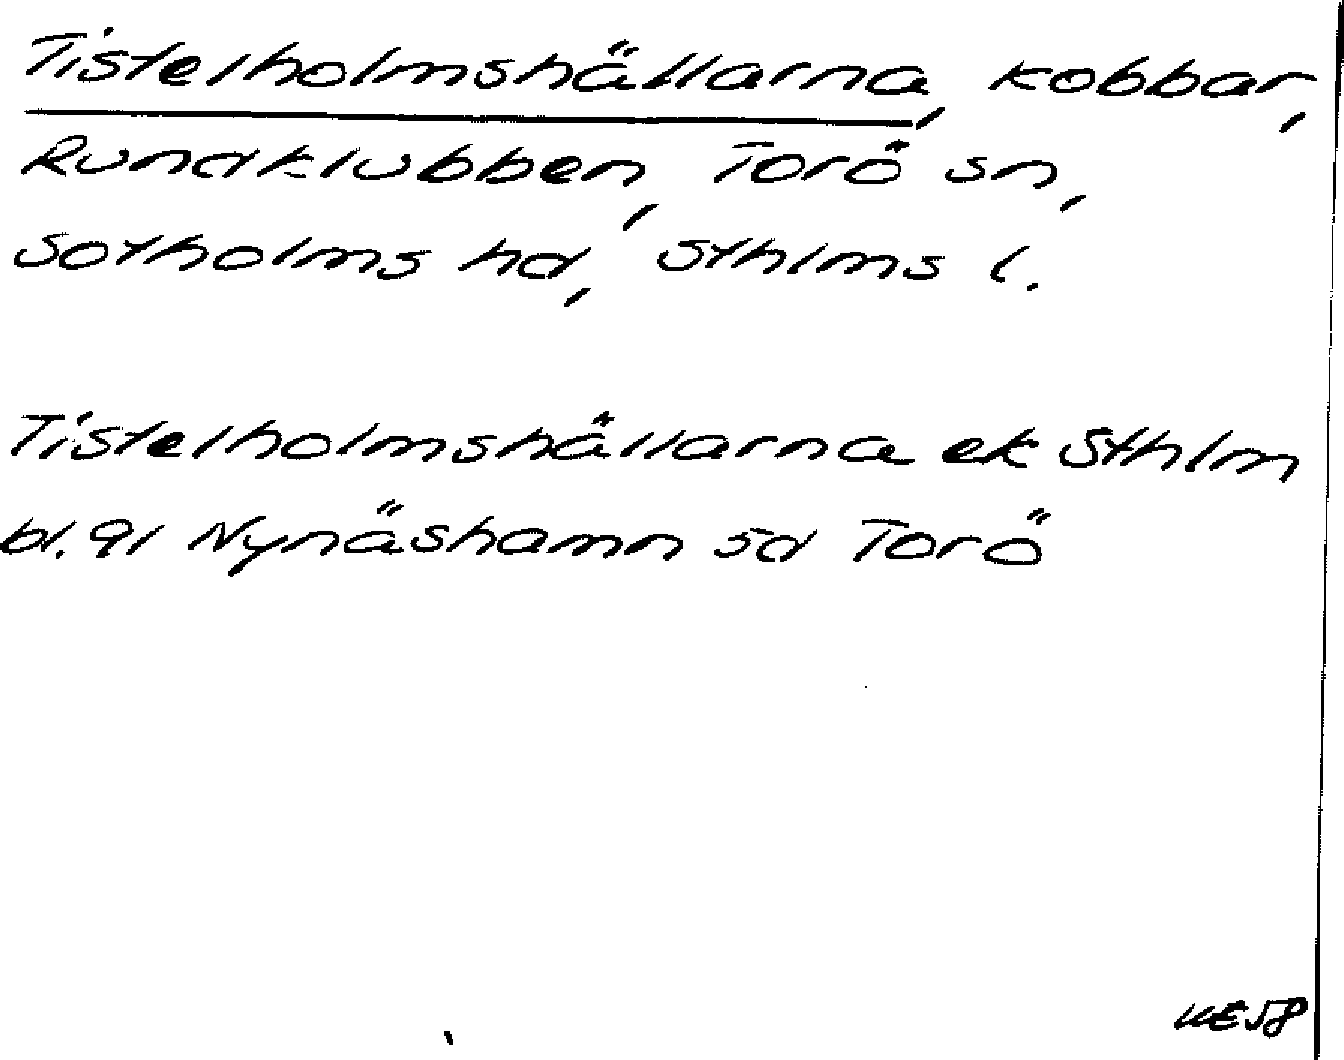 Tistelholmshällarna, kobbar,
Rundklubben, Torö sn,
Sotholms hd, Sthlms l.
Tistelholmshällarna ek Sthlm
bl. 91 Nynäshamn sd Torö
KE58